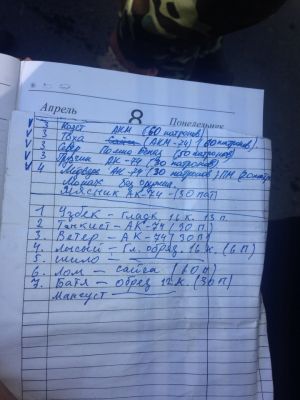 Апрель 8 Понедельник
3 Козёт АКМ (60 патронов)
3 Тоха Сайга (АКМ-74) (80 патронов)
3 Север (50 патронов)
3 АК-74 (30 патронов)
4 Медведь АК-74 (30 патронов)
Монах без оружия
Мясник АК-74 - (30 пат)
1 Узбек - Гладк. 16 к. 15 п.
2 Танкист - АК-74 (30 п.)
3 Ветер - АК-74 (30 п)
4. Лысый - Гл. обрез. 16 к. (6 п)
5. Шило -
6. Лом - сайга (60 п)
7. Батя - обрез 12 к. (30 п)
Мангуст -